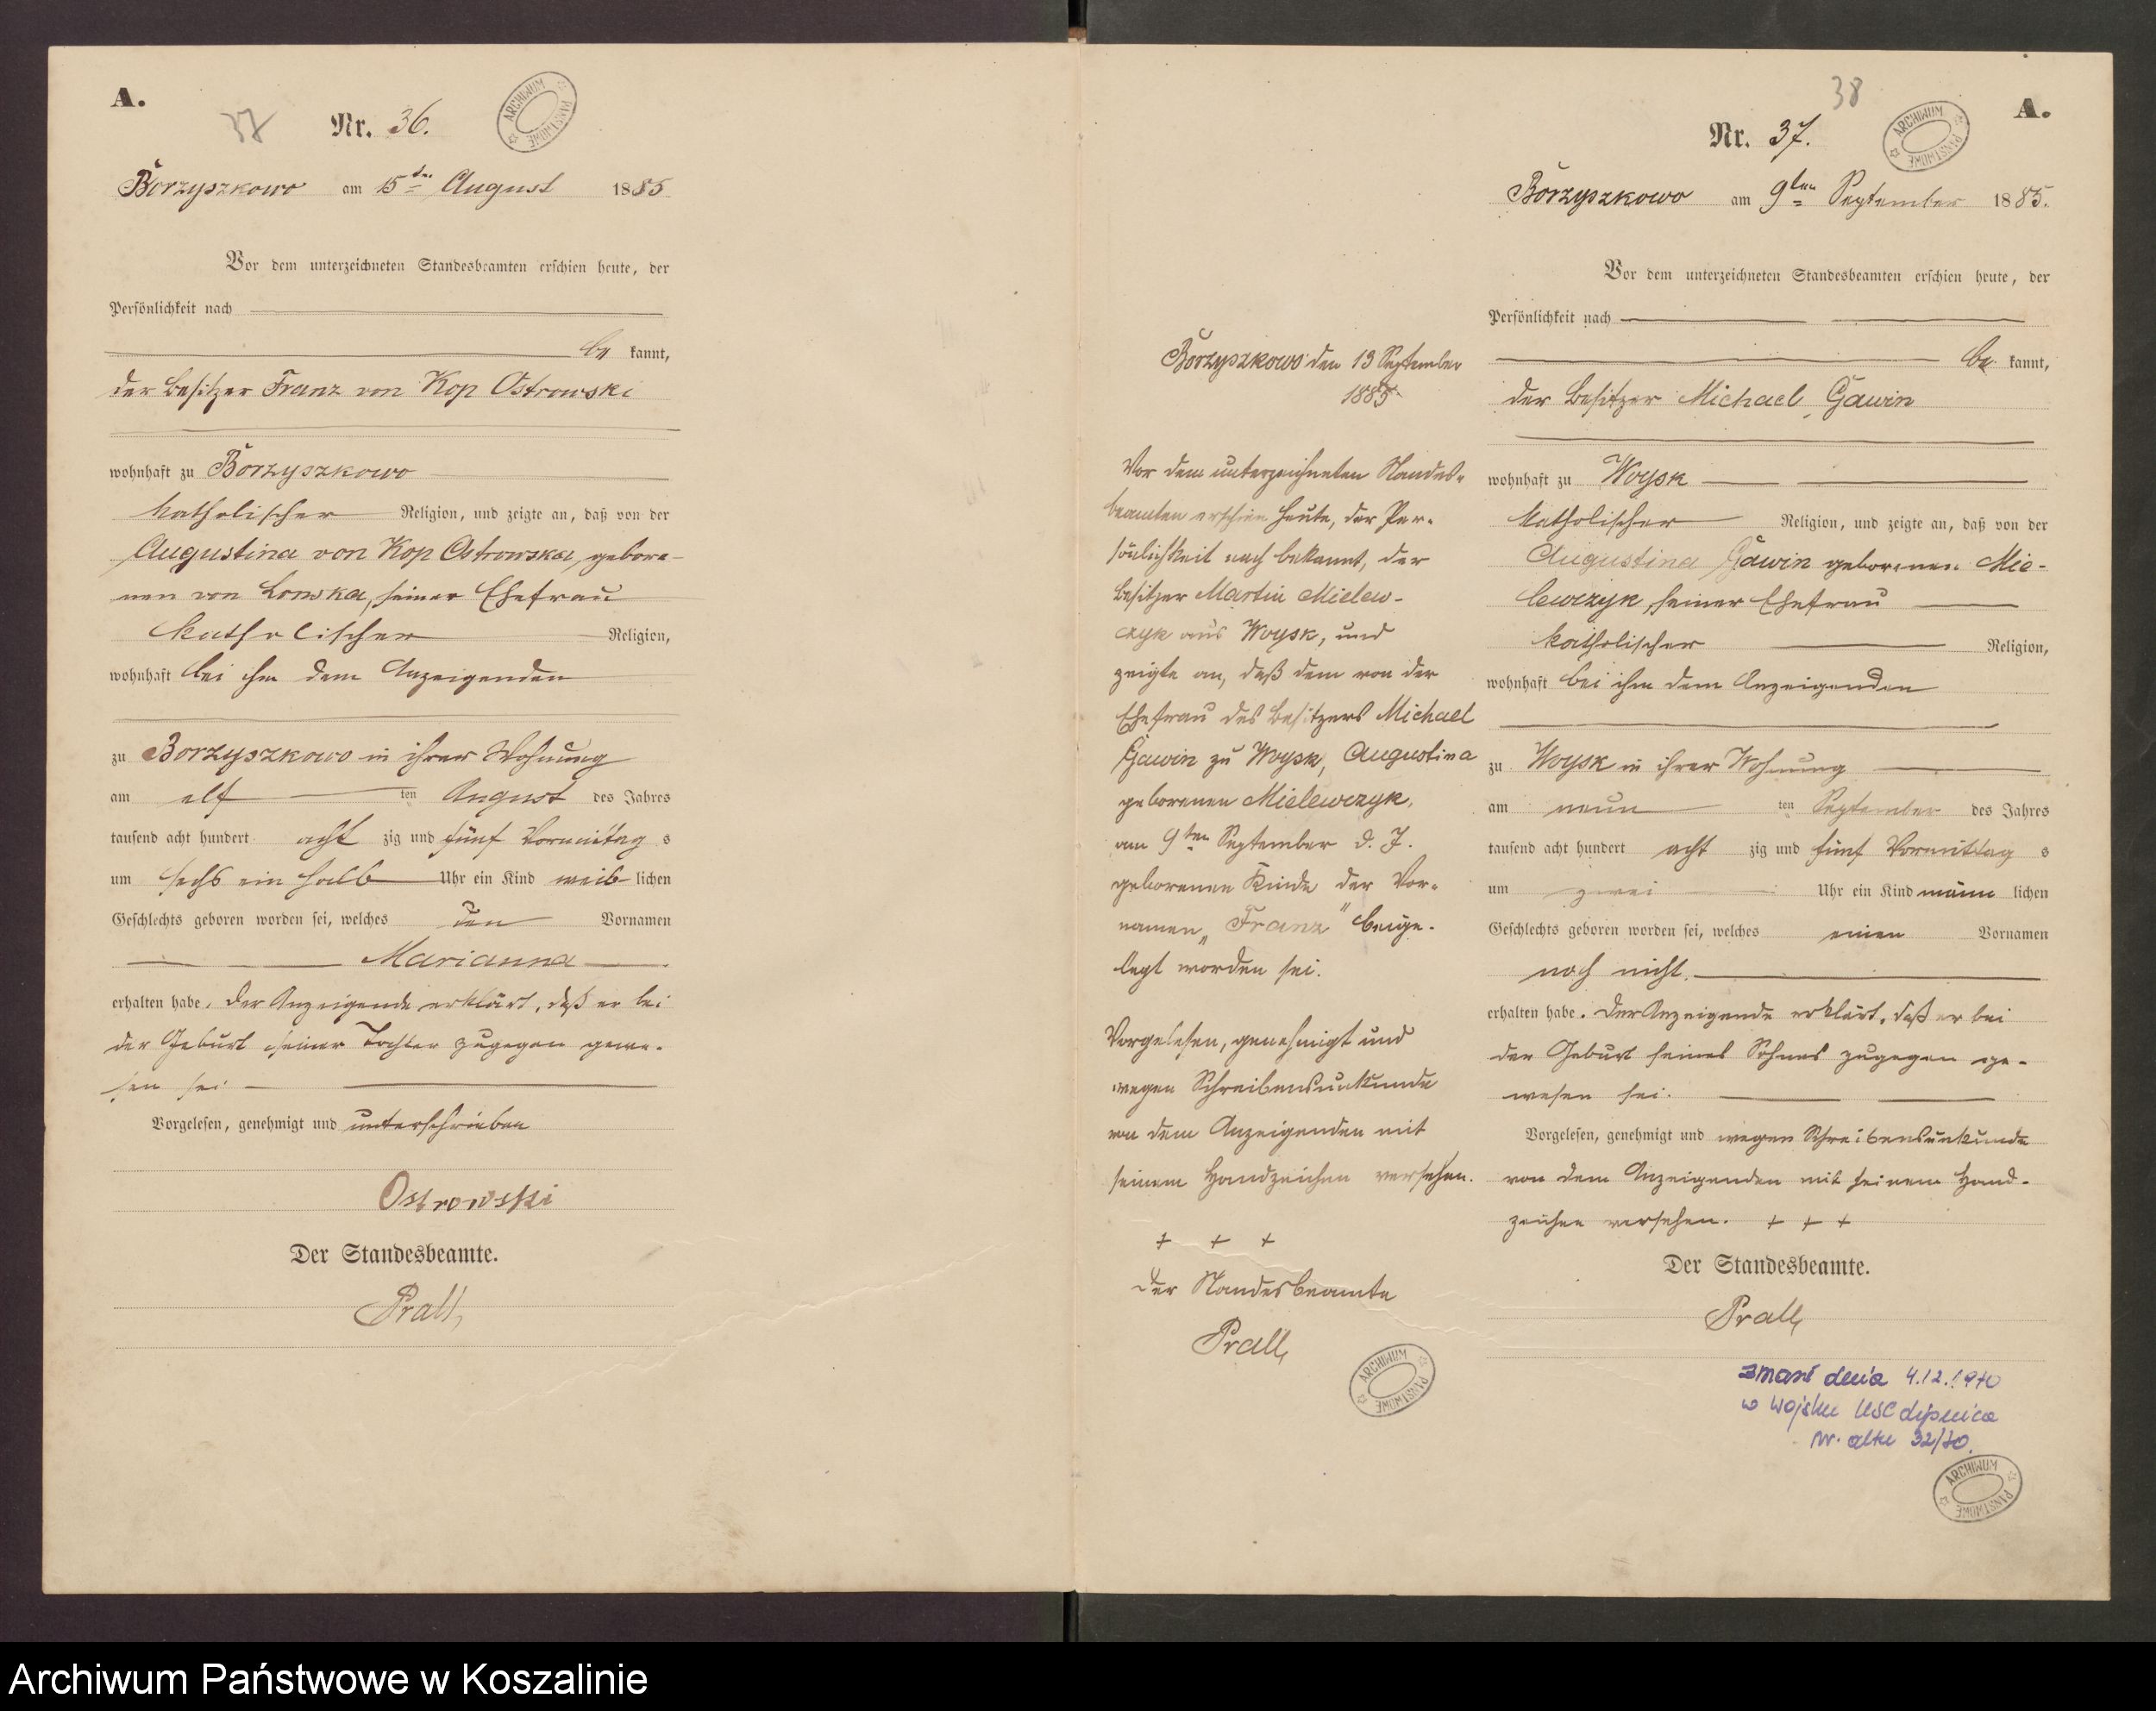 A.
37
Nr. 36.
ARCHIWUM PAŃSTWOWE
Borzyszkowo am 15ten August 1885
Vor dem unterzeichneten Standesbeamten erschien heute, der
Persönlichkeit nach
be kannt,
der Besitzer Franz von Kop Ostrowski
wohnhaft zu Borzyszkowo
katholischer Religion, und zeigte an, daß von der
Augustina von Kop Ostrowska, gebore-
nen von Lonska, seiner Ehefrau
katholischer Religion,
wohnhaft bei ihm dem Anzeigenden
zu Borzyszkowo in ihrer Wohnung
am elf ten August des Jahres
tausend acht hundert acht zig und fünf Vormittag s
um sechs ein halb Uhr ein Kind weib lichen
Geschlechts geboren worden sei, welches den Vornamen
Marianna
erhalten habe. Der Anzeigende erklärt, daß er bei
der Geburt seiner Tochter zugegen gewe-
sen sei
Vorgelesen, genehmigt und unterschrieben
Ostrowski
Der Standesbeamte.
Prall,
Borzyszkowo den 13 September
1885
Vor dem unterzeichneten Standes-
beamten erschien heute, der Per-
sönlichkeit nach bekannt, der
Besitzer Martin Mielew-
czyk aus Woysk, und
zeigte an, daß dem von der
Ehefrau des Besitzers Michael
Gawin zu Woysk, Augustina
geborenen Mielewczyk,
am 9ten September d. J.
geborenen Kinde der Vor-
namen „Franz" beige-
legt worden sei.
Vorgelesen, genehmigt und
wegen Schreibensunkunde
von dem Anzeigenden mit
seinem Handzeichen versehen.
+ + +
Der Standesbeamte
Prall,
ARCHIWUM PAŃSTWOWE
38
A.
Nr. 37.
ARCHIWUM PAŃSTWOWE
Borzyszkowo am 9ten September 1885.
Vor dem unterzeichneten Standesbeamten erschien heute, der
Persönlichkeit nach
be kannt,
der Besitzer Michael Gawin
wohnhaft zu Woysk
katholischer Religion, und zeigte an, daß von der
Augustina Gawin geborenen Mie-
lewczyk, seiner Ehefrau
katholischer Religion,
wohnhaft bei ihm dem Anzeigenden
zu Woysk in ihrer Wohnung
am neun ten September des Jahres
tausend acht hundert acht zig und fünf Vormittag s
um zwei Uhr ein Kind männ lichen
Geschlechts geboren worden sei, welches einen Vornamen
noch nicht
erhalten habe. Der Anzeigende erklärt, daß er bei
der Geburt seines Sohnes zugegen ge-
wesen sei.
Vorgelesen, genehmigt und wegen Schreibensunkunde
von dem Anzeigenden mit seinem Hand-
zeichen versehen. + + +
Der Standesbeamte.
Prall,
zmarł dnia 4.12.1970
w Wojsku USC Lipnica
nr. aktu 32/70.
ARCHIWUM PAŃSTWOWE
Archiwum Państwowe w Koszalinie